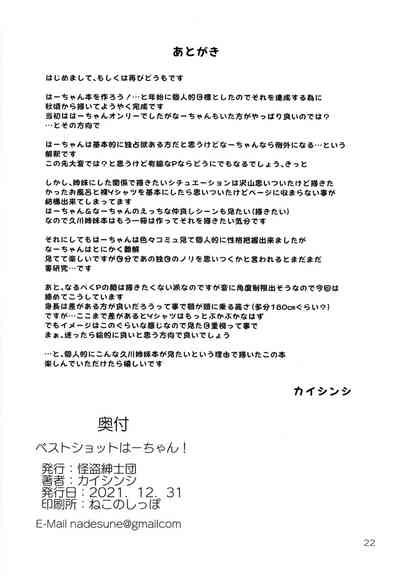 あとがき
はじめまして、もしくは再びどうもです
はーちゃん本を作ろう！…と年始に個人的目標としたのでそれを達成する為に
秋頃から描いてようやく完成です
当初ははーちゃんオンリーでしたがなーちゃんもいた方がやっぱり良いのでは？
…とその方向で
はーちゃんは基本的に独占欲ある方だと思うけどなーちゃんなら例外になる…という
解釈です
この先大変では？と思うけど有能なPならどうにでもなるでしょう、きっと
しかし、姉妹にした関係で描きたいシチュエーションは沢山思いついたけど描きた
かったお風呂と裸Yシャツを基本にしたら思いついたけどページに収まらない事が
結構出来てしまってます
はーちゃん&なーちゃんのえっちな仲良しシーンも見たい(描きたい)
なので久川姉妹本はもう一冊は作ってそれを描きたい気分です
それにしてもはーちゃんは色々コミュ見て個人的に性格把握出来ましたが
なーちゃんはとにかく難解
見てて楽しいですが自分であの独自のノリを思いつくかと言われるとまだまだ
要研究…です
あと、なるべくPの顔は描きたくない派なのですが首に角度制限出そうなので今回は
締めてこうしています
身長は差がある方が良いだろうって事で顎が頭に乗る高さ(多分180cmぐらい？)
ですが…ここまで差があるとYシャツはもっとぶかぶかなはず
でもイメージはこのぐらいな感じなので見た目重視って事で
まぁ、迷ったら絵的に良いと思う方向で良いでしょう
…と、個人的にこんな久川姉妹本が見たいという理由で描いたこの本
楽しんでいただけたら嬉しいです
カイシンシ
奥付
ベストショットはーちゃん！
発行：怪盗紳士団
著者：カイシンシ
発行日：2021．12．31
印刷所：ねこのしっぽ
E-Mail nadesune@gmailcom
22